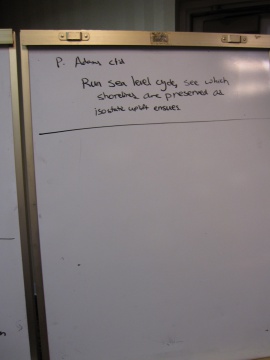 P. Adams ctd
Run sea level cycle, see which
shorelines are preserved as
isostatic uplift ensues